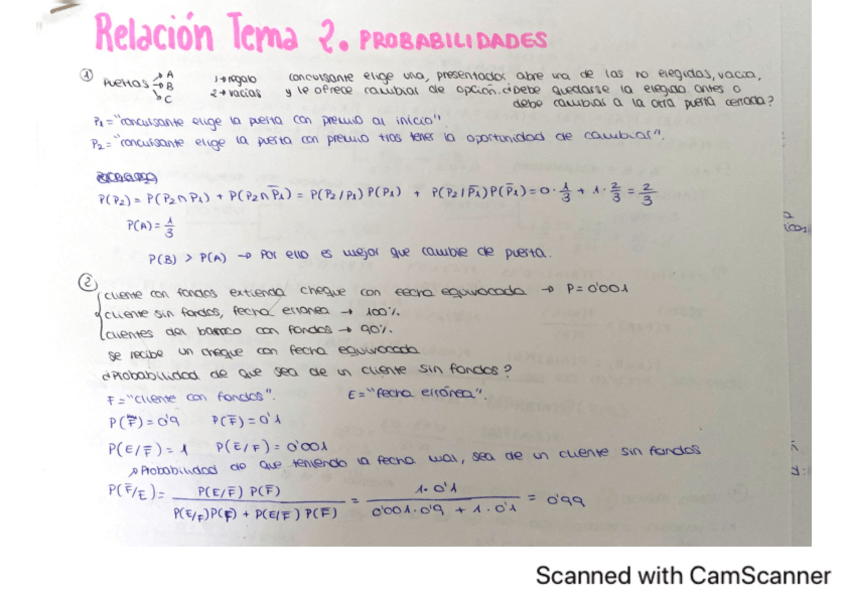 Relación Tema 2. PROBABILIDADES
① PUERTAS → A → B → C 1 → regalo 2 → vacías concursante elige una, presentador abre una de las no elegidas, vacía,
y le ofrece cambiar de opción. ¿debe quedarse la elegida antes o
debe cambiar a la otra puerta cerrada?
P₁ = "concursante elige la puerta con premio al inicio".
P₂ = "concursante elige la puerta con premio tras tener la oportunidad de cambiar".
P(P₂) = P(P₂∩P₁) + P(P₂∩P̅₁) = P(P₂/P₁) P(P₁) + P(P₂/P̅₁)P(P̅₁) = 0 · 1/3 + 1 · 2/3 = 2/3
P(A) = 1/3
P(B) > P(A) → Por ello es mejor que cambie de puerta.
② cliente con fondos extienda cheque con fecha equivocada → P = 0'001
cliente sin fondos, fecha errónea → 100%.
clientes del banco con fondos → 90%.
se recibe un cheque con fecha equivocada
¿Probabilidad de que sea de un cliente sin fondos?
F = "cliente con fondos". E = "fecha errónea".
P(F) = 0'9 P(F̅) = 0'1
P(E/F̅) = 1 P(E/F) = 0'001
Probabilidad de que teniendo la fecha mal, sea de un cliente sin fondos
P(F̅/E) = P(E/F̅) P(F̅) / P(E/F)P(F) + P(E/F̅) P(F̅) = 1 · 0'1 / 0'001 · 0'9 + 1 · 0'1 = 0'99
Scanned with CamScanner